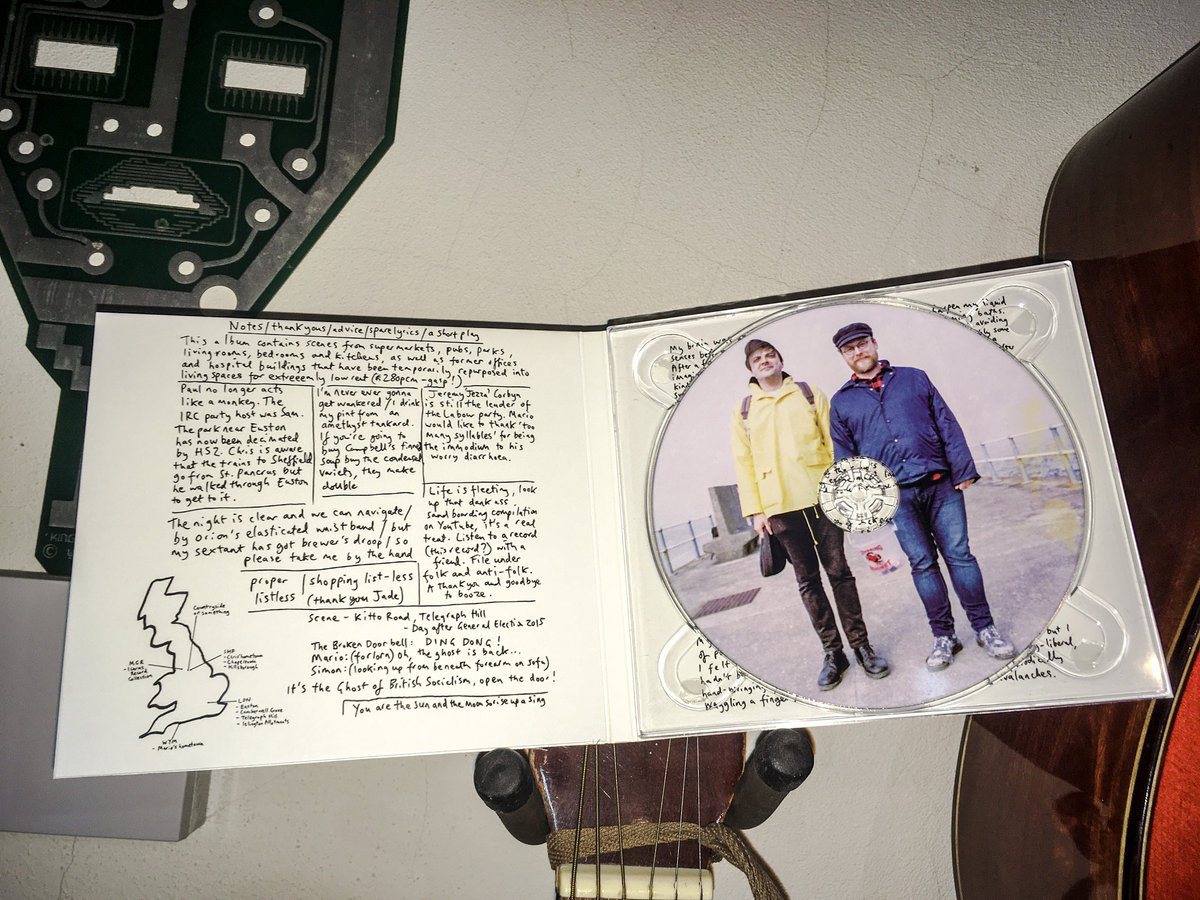 Notes/thankyous/advice/sparelyrics/a short play
This album contains scenes from supermarkets, pubs, parks,
livingrooms, bedrooms and kitchens, as well as former offices
and hospital buildings that have been temporarily repurposed into
living spaces for extreeemly low rent (£280pcm -gasp!)
Paul no longer acts
like a monkey. The
IRC party host was Sam.
The park near Euston
has now been decimated
by HS2. Chris is aware
that the trains to Sheffield
go from St. Pancras but
he walked through Euston
to get to it.
I'm never ever gonna
get wankered / I drink
my pint from an
amethyst tankard.
If you're going to
buy Campbell's finest
soup buy the condensed
variety, they make
double
Jeremy 'Jezza' Corbyn
is still the leader of
the Labour party. Mario
would like to thank 'too
many syllables' for being
the immodium to his
worry diarrhoea.
Life is fleeting, look
up that dank ass
sandboarding compilation
on YouTube, it's a real
treat. Listen to a record
(this record?) with a
friend. File under
folk and anti-folk.
A thankyou and goodbye
to booze.
The night is clear and we can navigate/
by Orion's elasticated waistband / but
my sextant has got brewer's droop / so
please take me by the hand
proper
listless
shopping list-less
(thank you Jade)
Scene - Kitto Road, Telegraph Hill
- Day after General Election 2015
The Broken Doorbell: DING DONG!
Mario: (forlorn) oh, the ghost is back...
Simon: (looking up from beneath forearm on sofa)
It's the Ghost of British Socialism, open the door!
You are the sun and the moon so rise up & sing
Countryside
or something
MCR
- Icarus
Record
Collection
SHF
- Chris' hometown
- Chapeltown
- Hillsborough
LDN
- Euston
- Camberwell Grove
- Telegraph Hill
- Islington Allotments
WYM
- Mario's hometown
My brain was
senses bef
After a f
sharpen my liquid
avoiding
some
you
of p
I felt
hadn't b
hand-wringing,
waggling a finger
but I
-liberal,
avalanches.